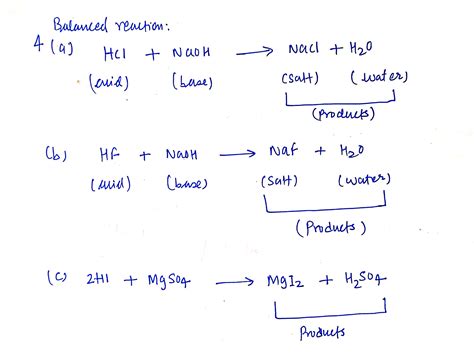 Balanced reaction:
4 (a) HCl + NaOH → NaCl + H2O
(acid) (base) (salt) (water)
(Products)
(b) HF + NaOH → NaF + H2O
(acid) (base) (salt) (water)
(Products)
(c) 2HI + MgSO4 → MgI2 + H2SO4
Products